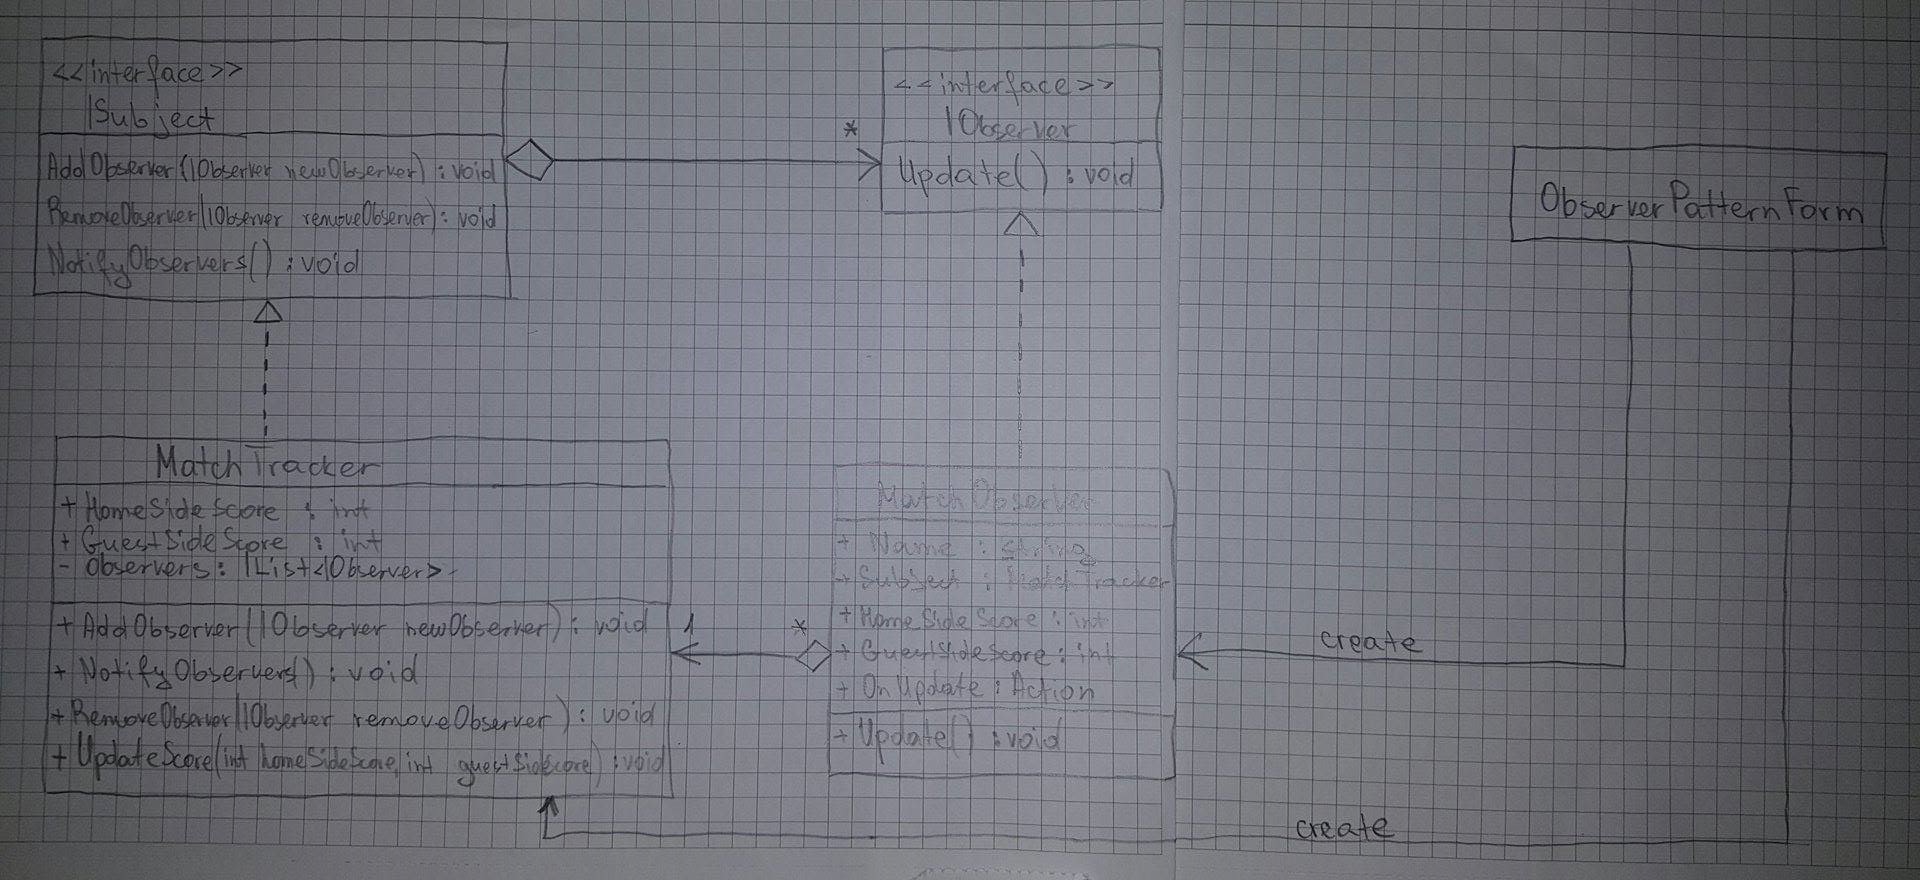 <<interface>>
ISubject
AddObserver(IObserver newObserver) : void
RemoveObserver(IObserver removeObserver) : void
NotifyObservers() : void
*
<<interface>>
IObserver
Update() : void
ObserverPatternForm
MatchTracker
+ HomeSideScore : int
+ GuestSideScore : int
- Observers : IList<IObserver>
+ AddObserver(IObserver newObserver) : void
+ NotifyObservers() : void
+ RemoveObserver(IObserver removeObserver) : void
+ UpdateScore(int homeSideScore, int guestSidecore) : void
1
*
MatchObserver
+ Name : string
+ Subject : MatchTracker
+ HomeSideScore : int
+ GuestSideScore : int
+ OnUpdate : Action
+ Update() : void
create
create